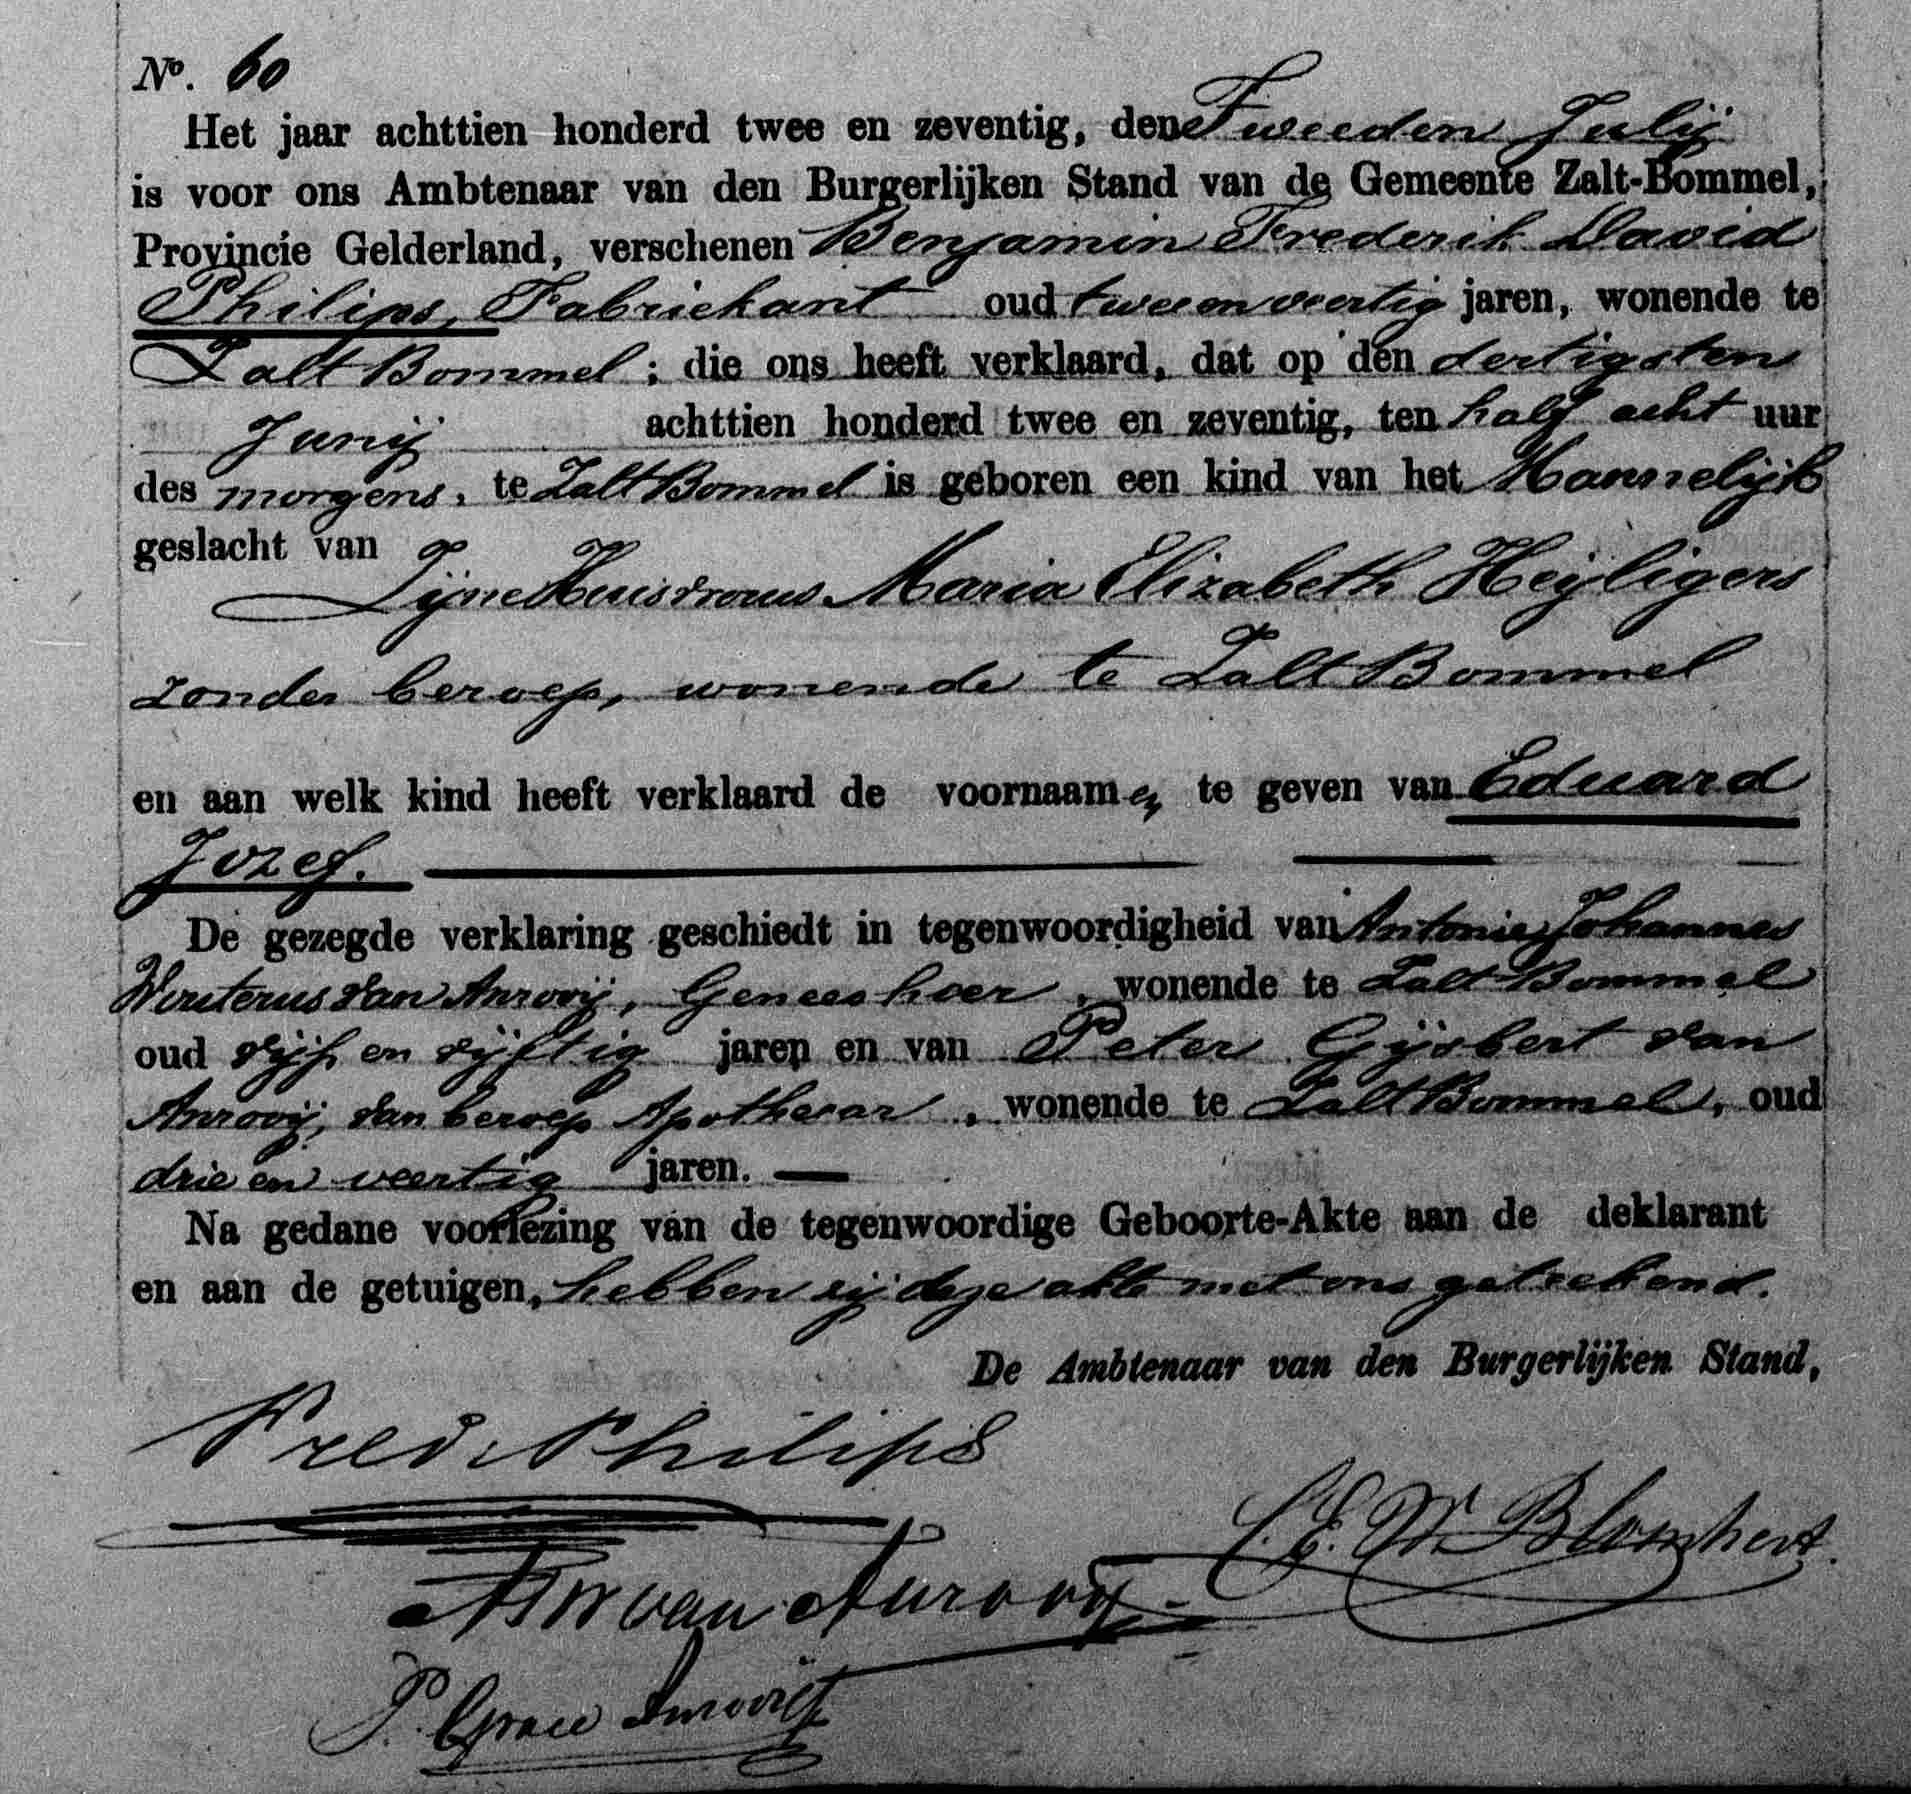 No. 60
Het jaar achttien honderd twee en zeventig, den Tweeden Julij
is voor ons Ambtenaar van den Burgerlijken Stand van de Gemeente Zalt-Bommel,
Provincie Gelderland, verschenen Benjamin Frederik David
Philips, Fabriekant oud twee en veertig jaren, wonende te
Zalt Bommel ; die ons heeft verklaard, dat op den dertigsten
Junij achttien honderd twee en zeventig, ten half acht uur
des morgens, te Zalt Bommel is geboren een kind van het Mannelijk
geslacht van
Zijne Huisvrouw Maria Elizabeth Heyligers
zonder beroep, wonende te Zalt Bommel
en aan welk kind heeft verklaard de voornaamen te geven van Eduard
Jozef.
De gezegde verklaring geschiedt in tegenwoordigheid van Antonie Johannes
Wouterus van Anrooij, Geneesheer, wonende te Zalt Bommel
oud vijf en vijftig jaren en van Peter Gijsbert van
Anrooij, van beroep Apothecar, wonende te Zalt Bommel, oud
drie en veertig jaren.
Na gedane voorlezing van de tegenwoordige Geboorte-Akte aan de deklarant
en aan de getuigen, hebben zij deze akte met ons geteekend.
De Ambtenaar van den Burgerlijken Stand,
Fred. Philips
C. E. W. Blomhert.
AJW van Anrooij
P. G. van Anrooij